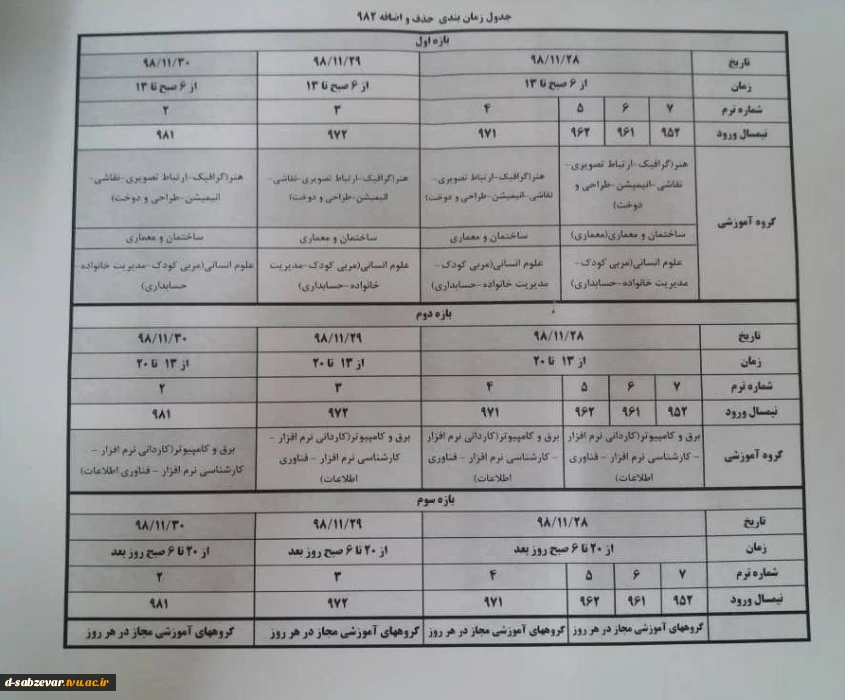 جدول زمان بندی حذف و اضافه ۹۸۲
بازه اول
تاریخ ۹۸/۱۱/۲۸ ۹۸/۱۱/۲۹ ۹۸/۱۱/۳۰
زمان از ۶ صبح تا ۱۳ از ۶ صبح تا ۱۳ از ۶ صبح تا ۱۳
شماره ترم ۷ ۶ ۵ ۴ ۳ ۲
نیمسال ورود ۹۵۲ ۹۶۱ ۹۶۲ ۹۷۱ ۹۷۲ ۹۸۱
گروه آموزشی
هنر(گرافیک-ارتباط تصویری-
نقاشی-انیمیشن-طراحی و
دوخت)
هنر(گرافیک-ارتباط تصویری-
نقاشی-انیمیشن-طراحی و دوخت)
هنر(گرافیک-ارتباط تصویری-نقاشی-
انیمیشن-طراحی و دوخت)
هنر(گرافیک-ارتباط تصویری-نقاشی-
انیمیشن-طراحی و دوخت)
ساختمان و معماری(معماری) ساختمان و معماری ساختمان و معماری ساختمان و معماری
علوم انسانی(مربی کودک-
مدیریت خانواده-حسابداری)
علوم انسانی(مربی کودک-
مدیریت خانواده-حسابداری)
علوم انسانی(مربی کودک-مدیریت
خانواده-حسابداری)
علوم انسانی(مربی کودک-مدیریت خانواده-
حسابداری)
بازه دوم
تاریخ ۹۸/۱۱/۲۸ ۹۸/۱۱/۲۹ ۹۸/۱۱/۳۰
زمان از ۱۳ تا ۲۰ از ۱۳ تا ۲۰ از ۱۳ تا ۲۰
شماره ترم ۷ ۶ ۵ ۴ ۳ ۲
نیمسال ورود ۹۵۲ ۹۶۱ ۹۶۲ ۹۷۱ ۹۷۲ ۹۸۱
گروه آموزشی
برق و کامپیوتر(کاردانی نرم افزار
- کارشناسی نرم افزار - فناوری
اطلاعات)
برق و کامپیوتر(کاردانی نرم افزار
- کارشناسی نرم افزار - فناوری
اطلاعات)
برق و کامپیوتر(کاردانی نرم افزار -
کارشناسی نرم افزار - فناوری
اطلاعات)
برق و کامپیوتر(کاردانی نرم افزار -
کارشناسی نرم افزار - فناوری اطلاعات)
بازه سوم
تاریخ ۹۸/۱۱/۲۸ ۹۸/۱۱/۲۹ ۹۸/۱۱/۳۰
زمان از ۲۰ تا ۶ صبح روز بعد از ۲۰ تا ۶ صبح روز بعد از ۲۰ تا ۶ صبح روز بعد
شماره ترم ۷ ۶ ۵ ۴ ۳ ۲
نیمسال ورود ۹۵۲ ۹۶۱ ۹۶۲ ۹۷۱ ۹۷۲ ۹۸۱
گروههای آموزشی مجاز در هر روز گروههای آموزشی مجاز در هر روز گروههای آموزشی مجاز در هر روز گروههای آموزشی مجاز در هر روز
d-sabzevar.tvu.ac.ir